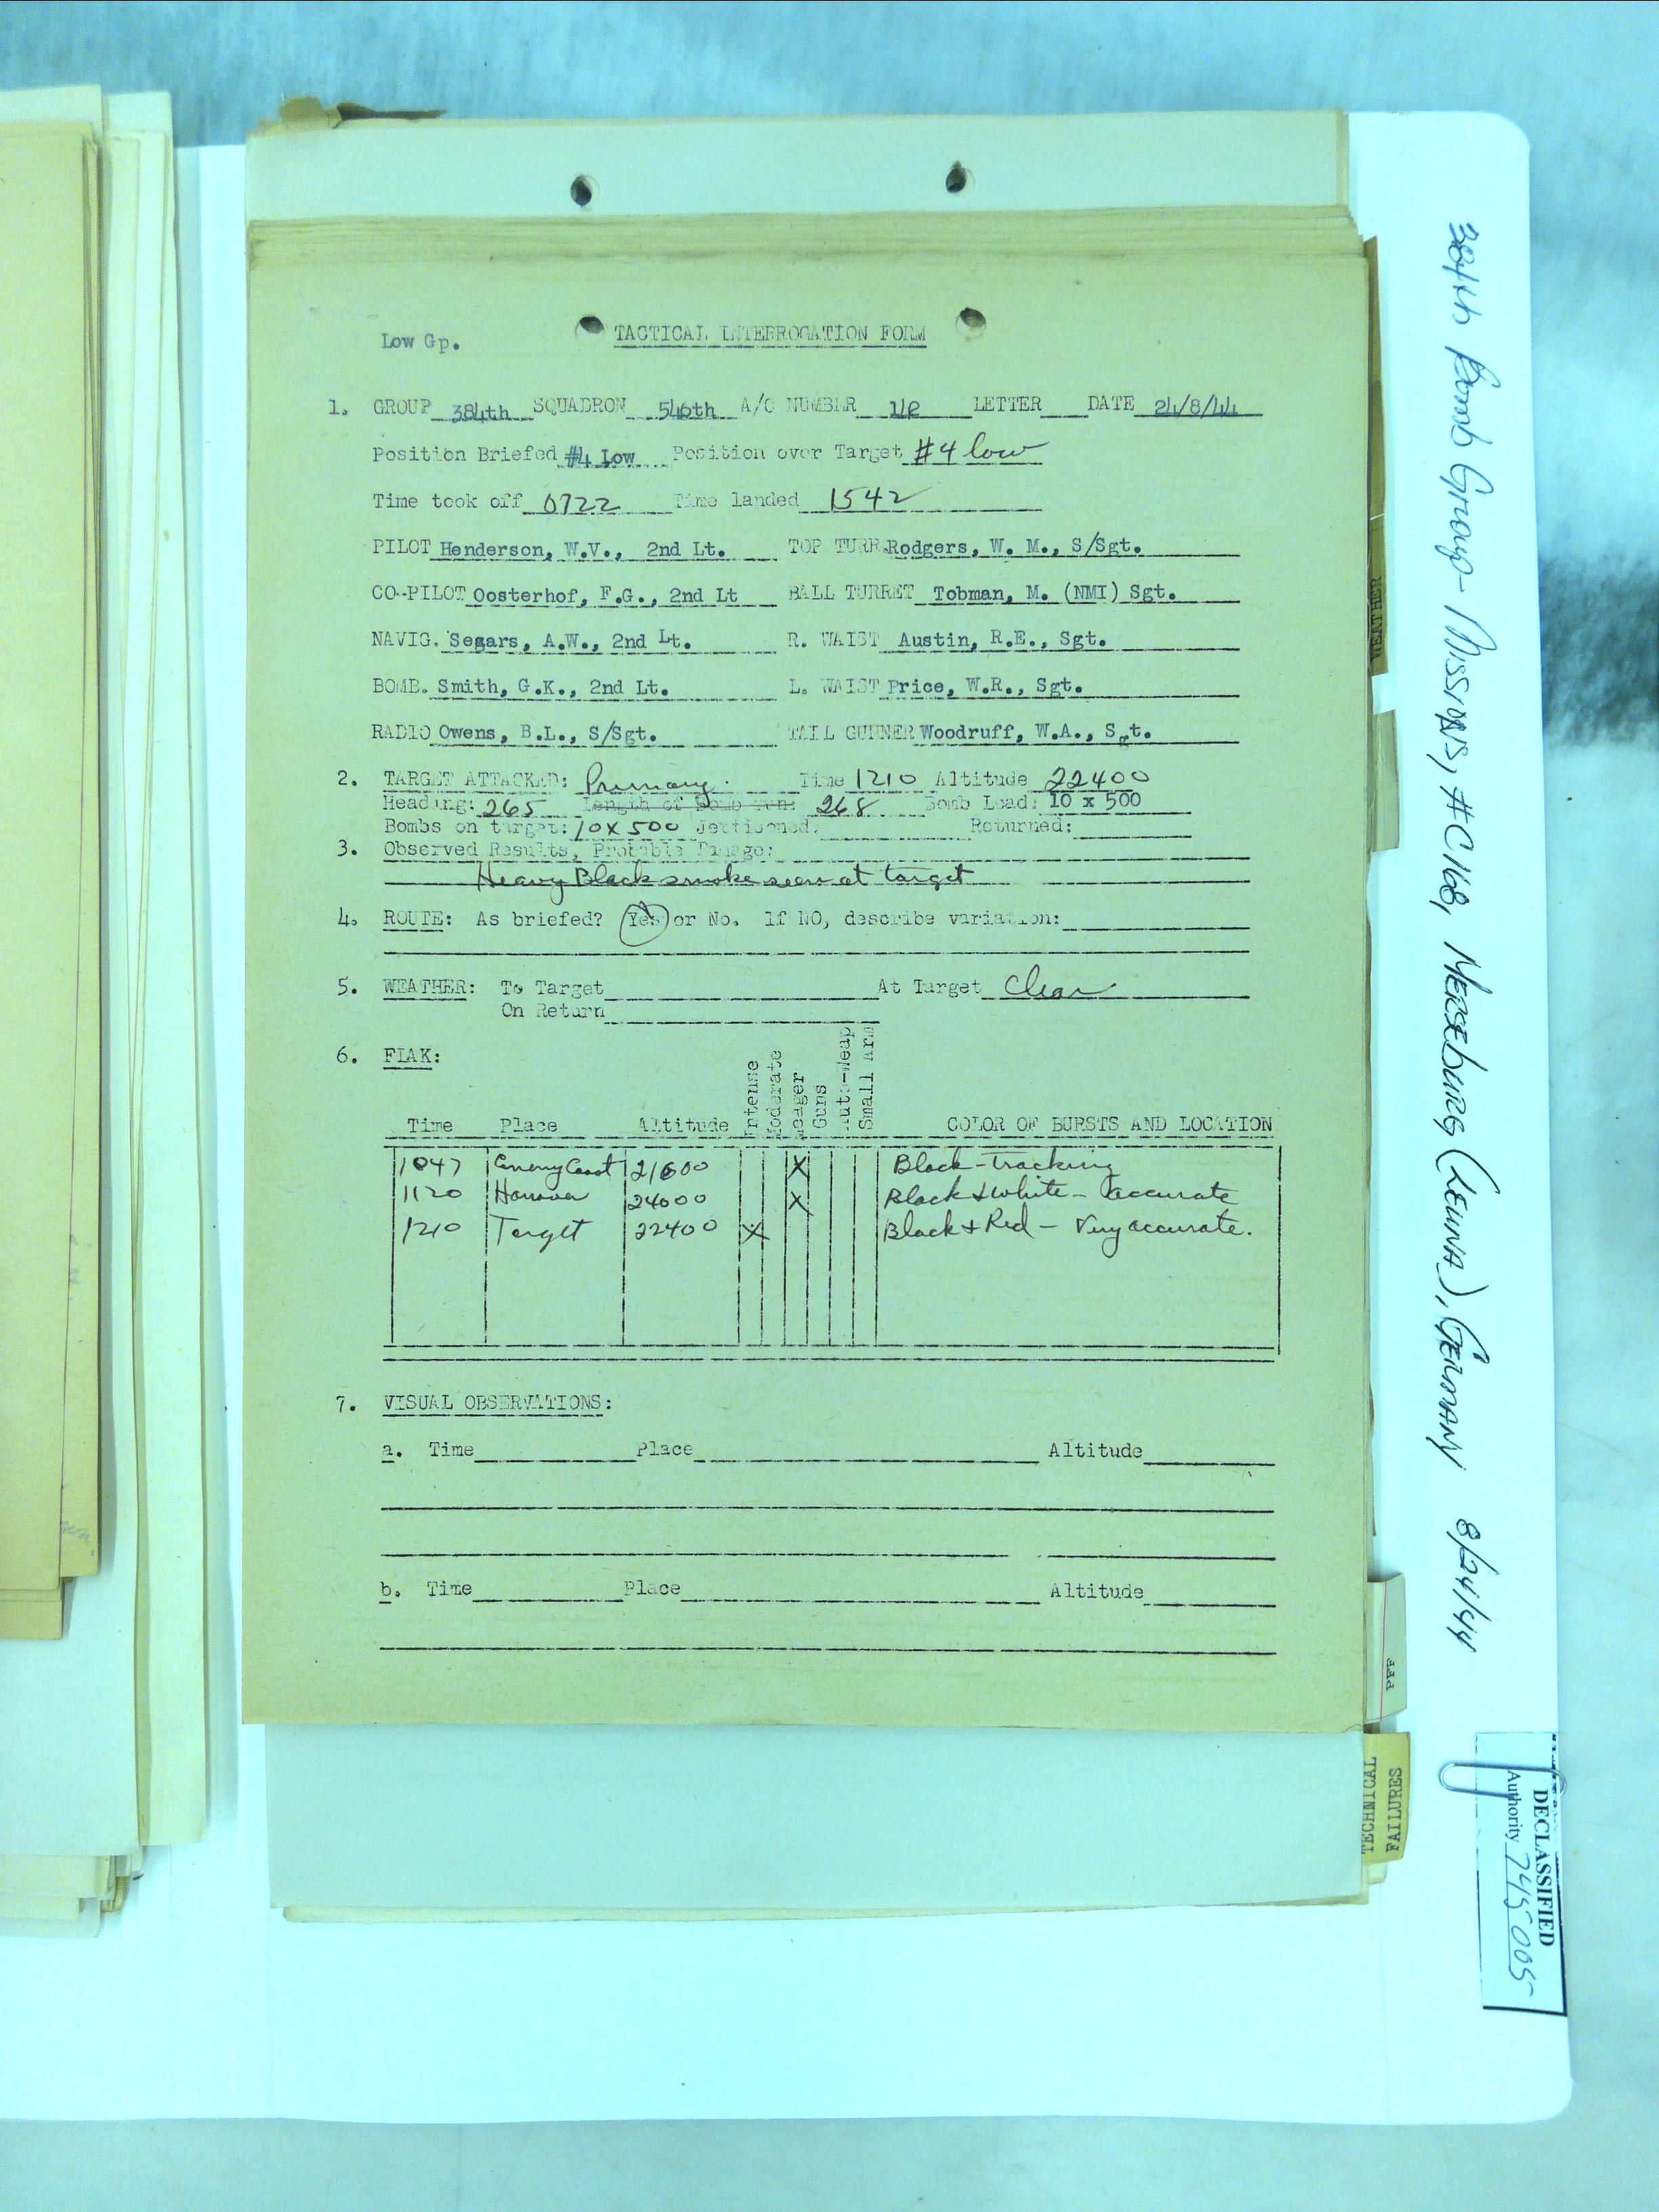 Low Gp.
TACTICAL INTERROGATION FORM
1. GROUP 384th SQUADRON 546th A/C NUMBER LETTER DATE 24/8/44
Position Briefed #4 Low Position over Target #4 low
Time took off 0722 Time landed 1542
PILOT Henderson, W.V., 2nd Lt. TOP TURR. Rodgers, W. M., S/Sgt.
CO-PILOT Oosterhof, F.G., 2nd Lt BALL TURRET Tobman, M. (NMI) Sgt.
NAVIG. Segars, A.W., 2nd Lt. R. WAIST Austin, R.E., Sgt.
BOMB. Smith, G.K., 2nd Lt. L. WAIST Price, W.R., Sgt.
RADIO Owens, B.L., S/Sgt. TAIL GUNNER Woodruff, W.A., Sgt.
2. TARGET ATTACKED: Primary. Time 1210 Altitude 22400
Heading: 265 Length of Bomb run: 268 Bomb Load: 10 x 500
Bombs on target: 10 x 500 Jettisoned: Returned:
3. Observed Results, Probable Damage:
Heavy Black smoke seen at target
4. ROUTE: As briefed? Yes or No. If NO, describe variation:
5. WEATHER: To Target At Target Clear
On Return
6. FLAK:
Time Place Altitude Intense Moderate Meager Guns Auto-Weap Small Arms COLOR OF BURSTS AND LOCATION
1047 Enemy Coast 21600 X Black - tracking
1120 Hanover 24000 X Black & white - accurate
1210 Target 22400 X Black & Red - Very accurate.
7. VISUAL OBSERVATIONS:
a. Time Place Altitude
b. Time Place Altitude
384th Bomb Group - Missions, #C168, MERSEBURG (LEUNA), GERMANY 8/24/44
WEATHER
PFF
TECHNICAL
FAILURES
DECLASSIFIED
Authority 745005